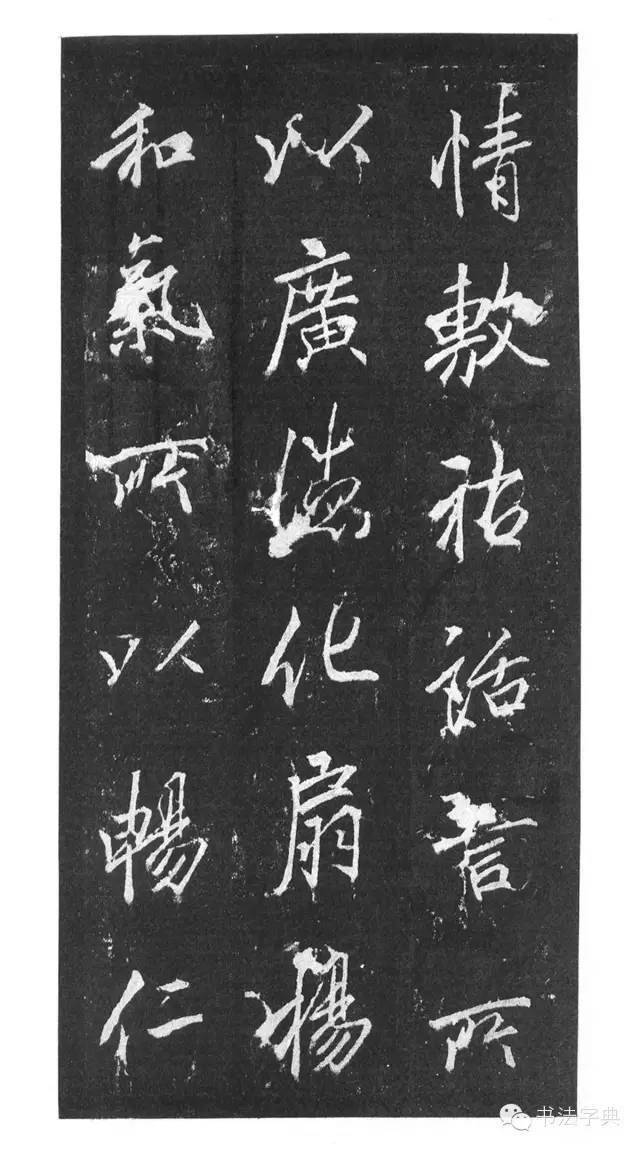 情敷祐話言所
以廣德化扇揚
和氣所以暢仁
书法字典